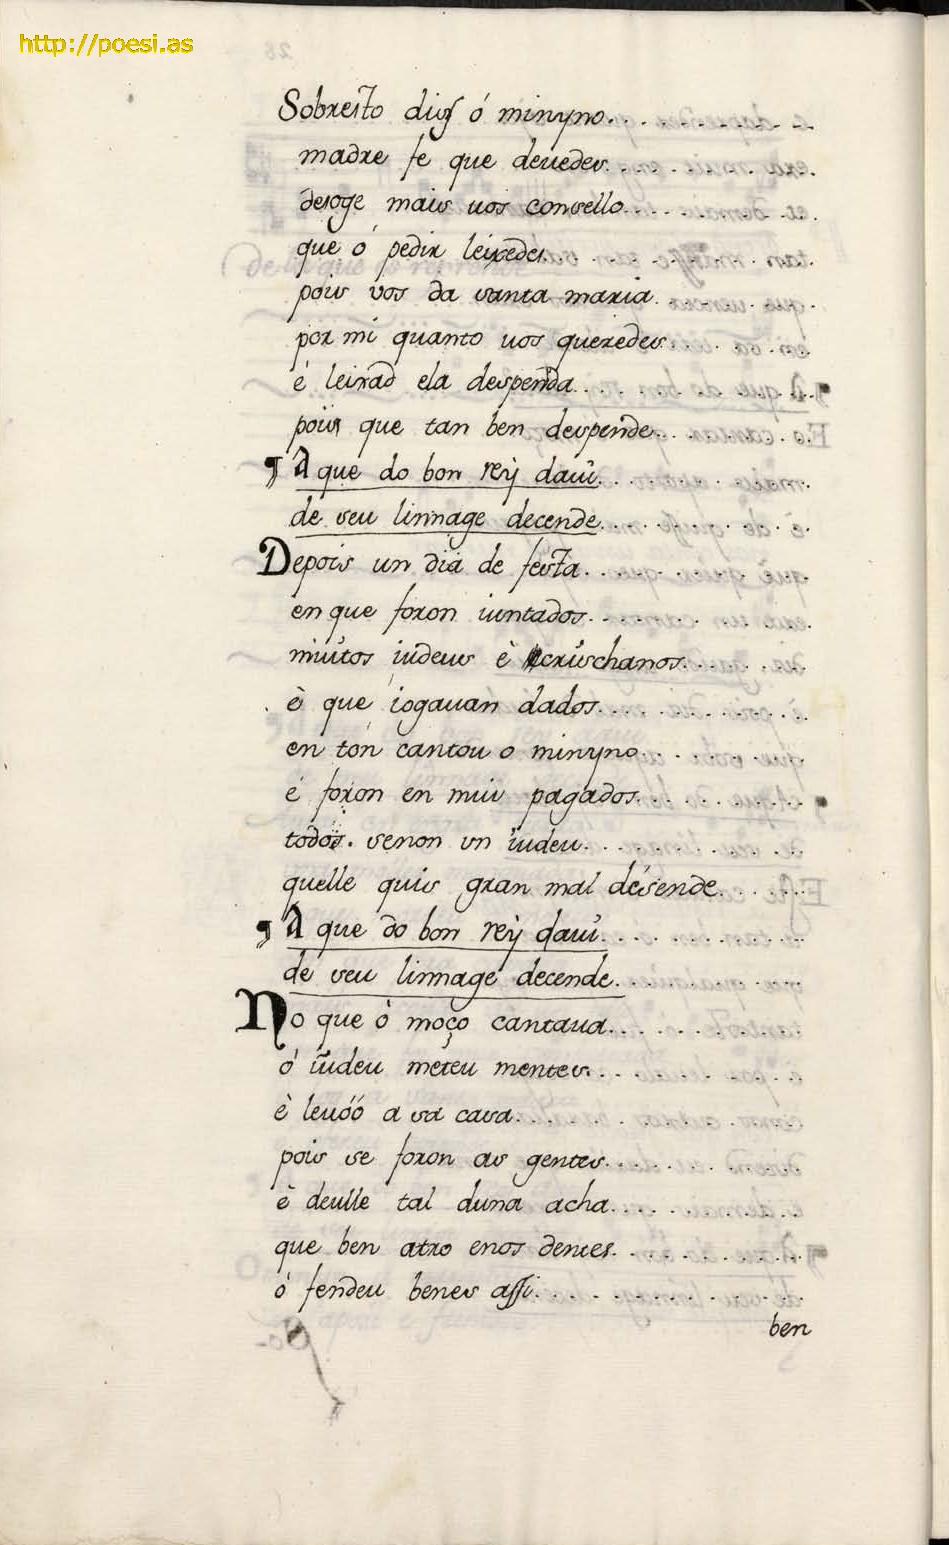 http://poesi.as
Sobresto diss ó minyno....
madre fe que deuedes....
desoge mais uos consello....
que ó pedir leixedes.
pois vos da santa maria.
por mi quanto uos queredes....
é leixad ela despenda....
pois que tan ben despende...
¶ A que do bon rey dauí......
de seu linnage decende......
Depois un dia de festa.......
en que foron iuntados.......
miutos iudeus è crischanos......
è que iogauan dados........
en ton cantou o minyno...
é foron en mui pagados......
todos. senon un iudeu......
quelle quis gran mal desende.....
¶ A que do bon rey dauí......
de seu linnage decende.....
No que ò moço cantaua......
ó iudeu meteu mentes......
è leuóó a sa casa......
pois se foron as gentes......
è deulle tal duna acha......
que ben atro enos dentes......
ó fendeu benes assi.......
ben